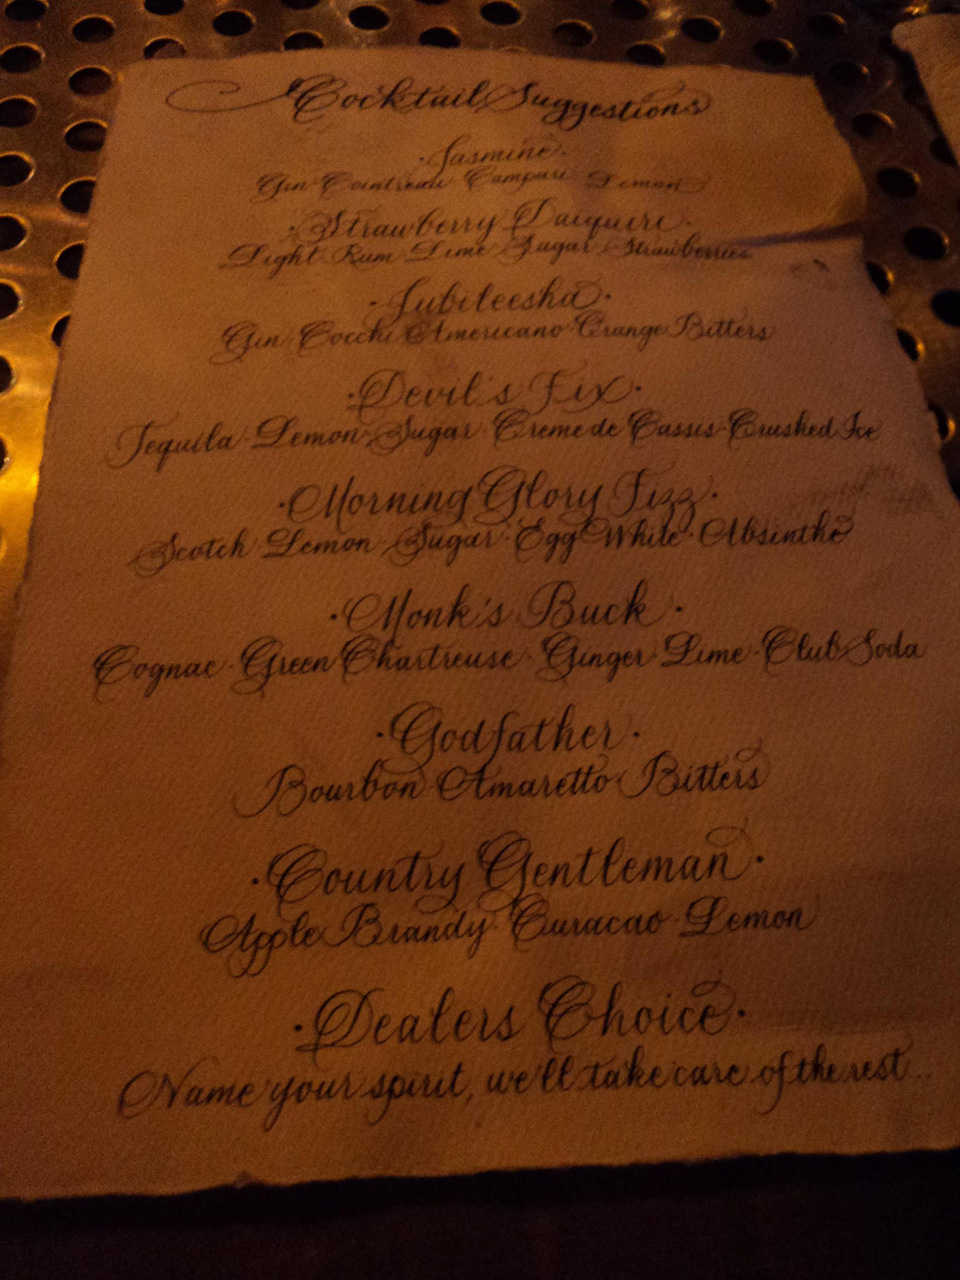 Cocktail Suggestions
· Jasmine ·
Gin · Cointreau · Campari · Lemon
· Strawberry Daiquiri ·
Light Rum · Lime · Sugar · Strawberries
· Jubileesha ·
Gin · Cocchi Americano · Orange Bitters
· Devil's Fix ·
Tequila · Lemon · Sugar · Creme de Cassis · Crushed Ice
· Morning Glory Fizz ·
Scotch · Lemon · Sugar · Egg White · Absinthe
· Monk's Buck ·
Cognac · Green Chartreuse · Ginger · Lime · Club Soda
· Godfather ·
Bourbon · Amaretto · Bitters
· Country Gentleman ·
Apple Brandy · Curacao · Lemon
· Dealers Choice ·
Name your spirit, we'll take care of the rest...